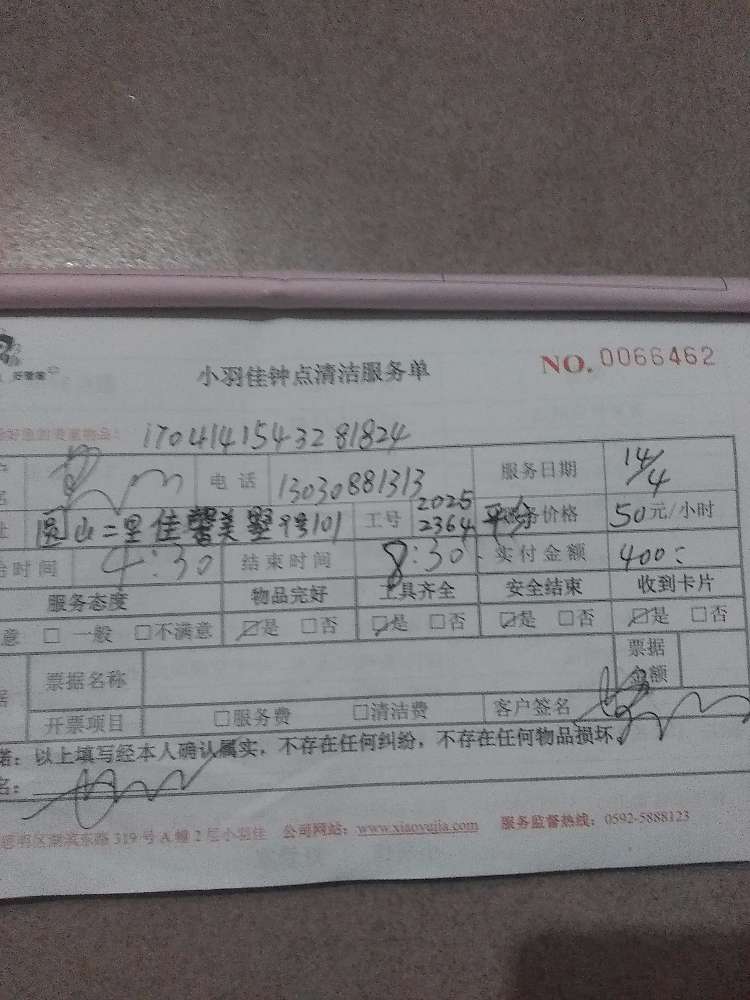 好慷佳
小羽佳钟点清洁服务单
NO. 0066462
1704141543281824
电话 13030881313 服务日期 14/4
圆山二里佳馨美墅 101 工号 2025 2364 平分 服务价格 50元/小时
时间 4:30 结束时间 8:30 实付金额 400:
服务态度 物品完好 工具齐全 安全结束 收到卡片
意 □ 一般 □不满意 ☑是 □否 ☑是 □否 ☑是 □否 ☑是 □否
据 票据名称 票据金额
开票项目 □服务费 □清洁费 客户签名
诺：以上填写经本人确认属实，不存在任何纠纷，不存在任何物品损坏。
名：
思明区湖滨东路 319 号 A 幢 2 层小羽佳 公司网站：www.xiaoyujia.com 服务监督热线：0592-5888123